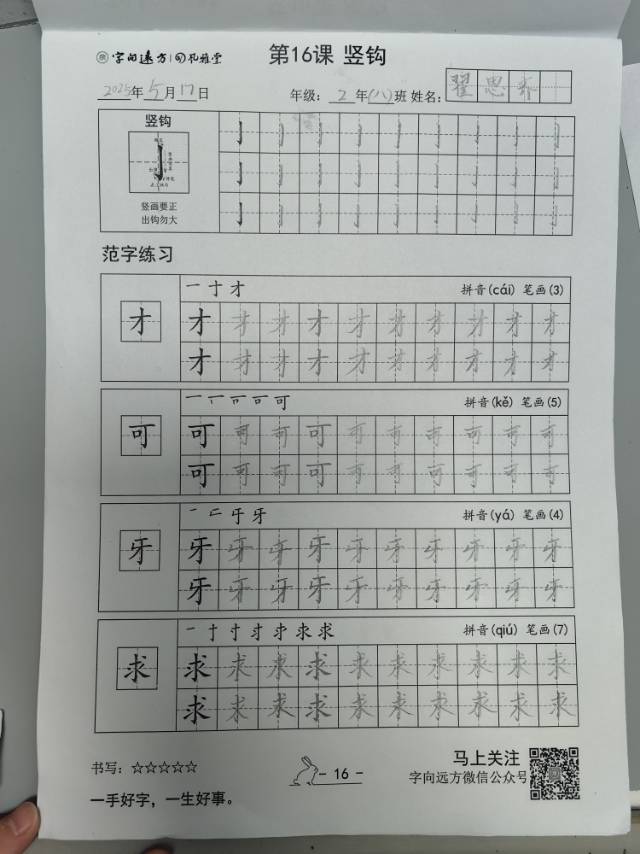 字向远方 孔雅堂
第16课 竖钩
2025年5月17日 年级：2年(八)班 姓名：翟思乔
竖钩
竖画要正
出钩勿大
范字练习
一 寸 才 拼音(cái) 笔画(3)
才 才 才 才 才 才 才 才 才 才 才
才 才 才 才 才 才 才 才 才 才
拼音(kě) 笔画(5)
可 可 可 可 可 可 可 可 可 可 可
可 可 可 可 可 可 可 可 可 可
拼音(yá) 笔画(4)
牙 牙 牙 牙 牙 牙 牙 牙 牙 牙 牙
牙 牙 牙 牙 牙 牙 牙 牙 牙 牙
拼音(qiú) 笔画(7)
求 求 求 求 求 求 求 求 求 求 求
求 求 求 求 求 求 求 求 求 求
书写：☆☆☆☆☆ - 16 - 马上关注
字向远方微信公众号
一手好字，一生好事。